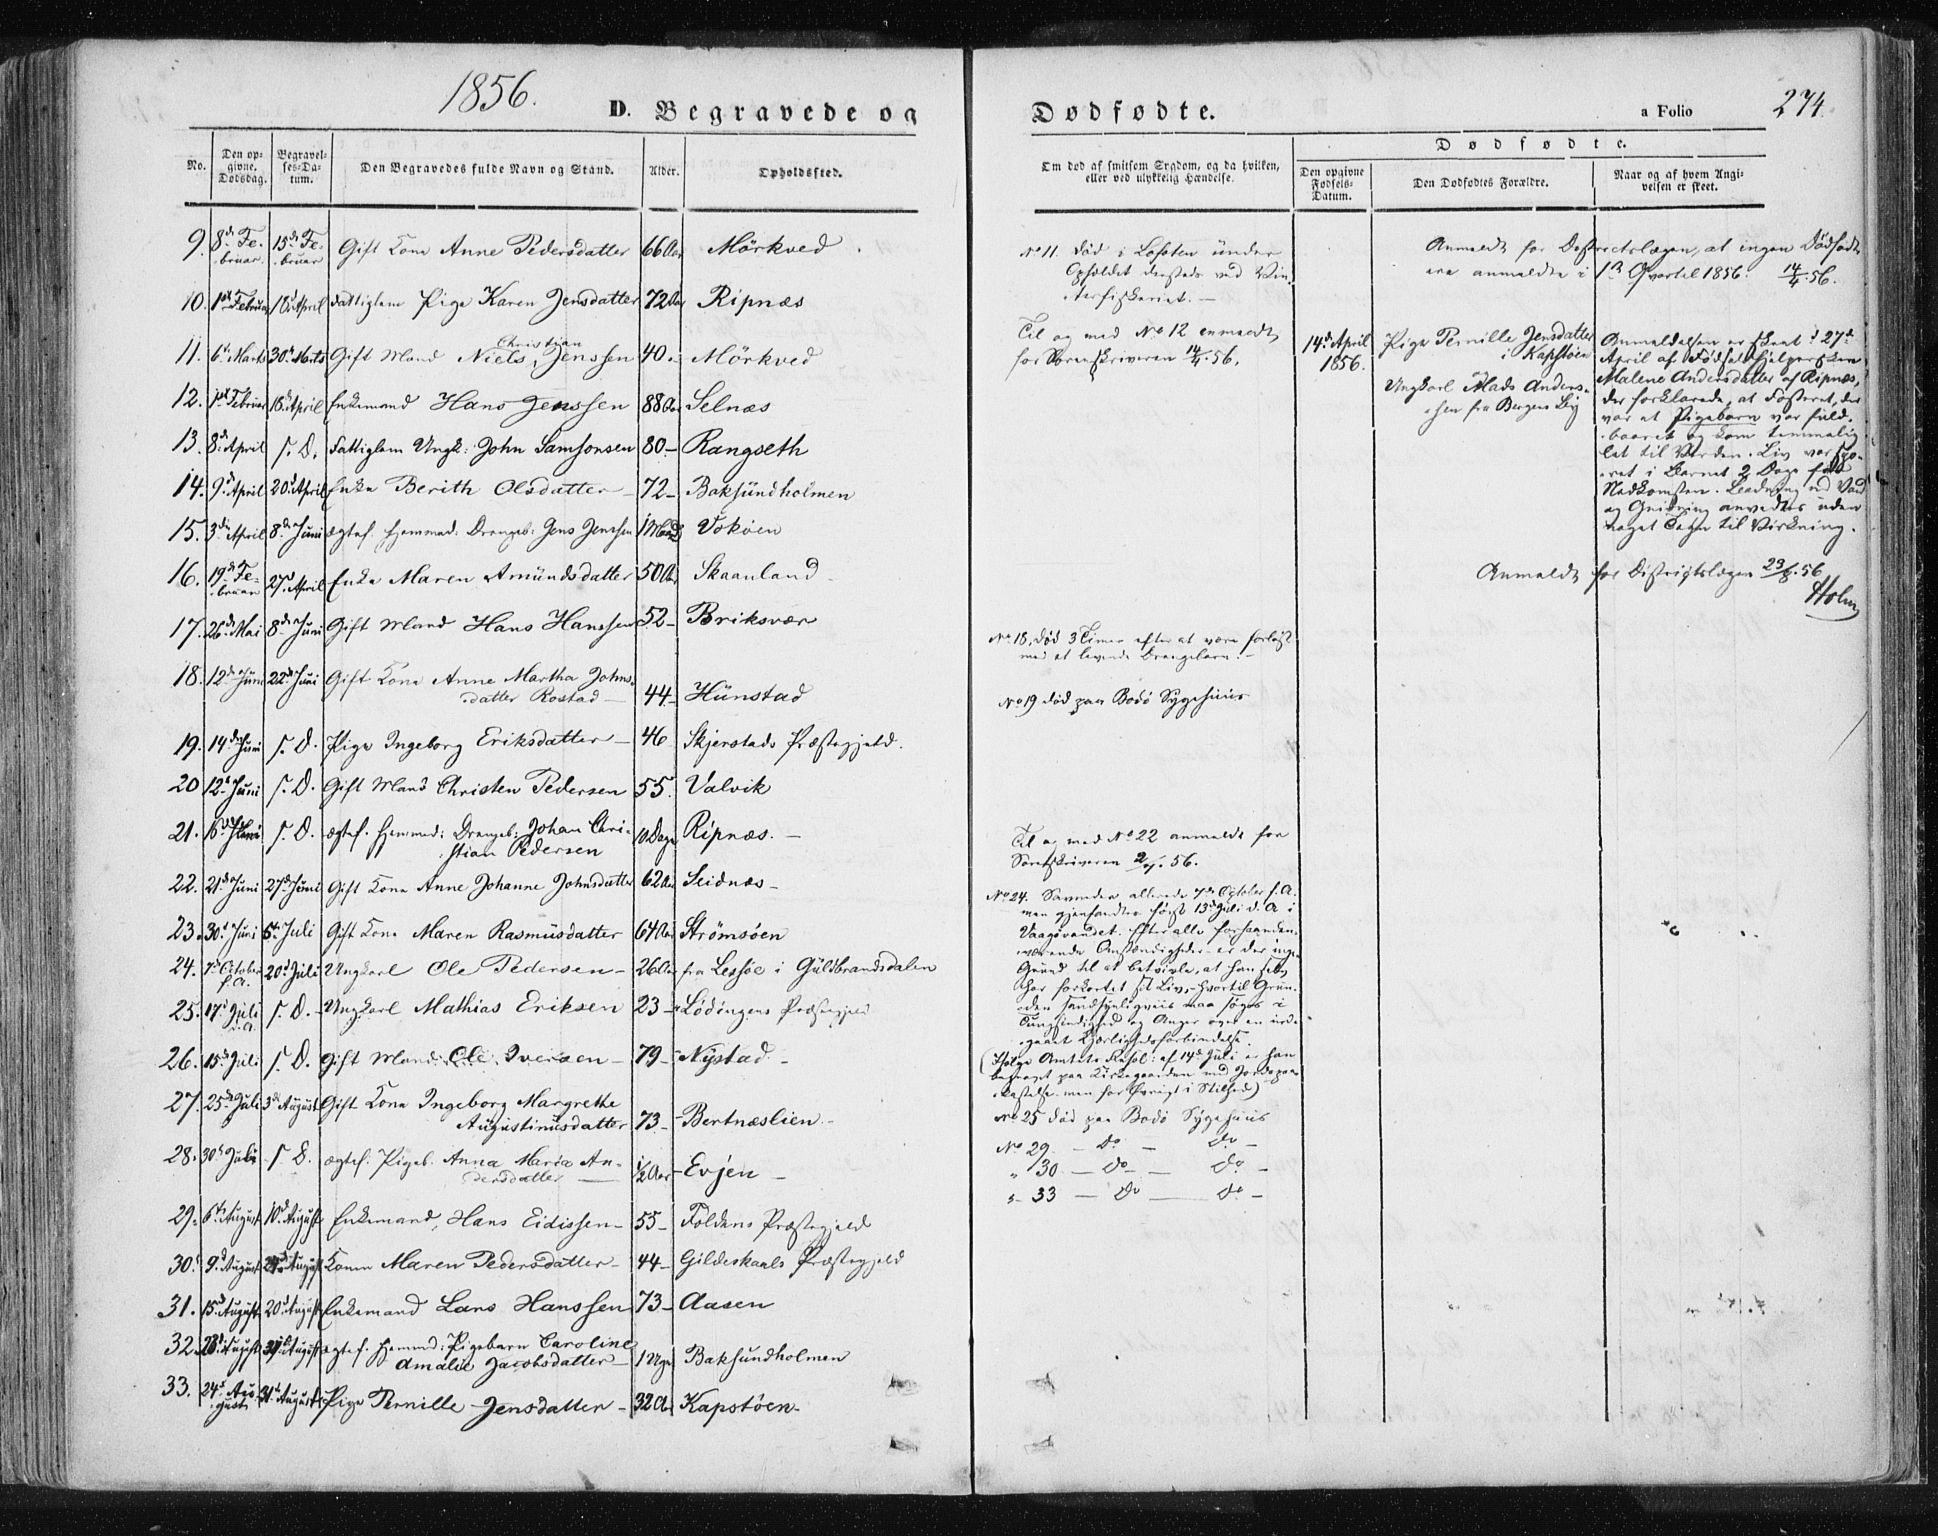 1856.
D. Begravede og
No.
Den op-
givne
Dødsdag.
Begravel-
ses-Da-
tum.
Den Begravedes fulde Navn og Stand.
Alder.
Opholdssted.
9. 8de Fe-
bruar 15de Fe-
bruar Gift Kone Anne Pedersdatter 66 Aar Mörkved
10. 1ste Februar 18de April Fattiglem Pige Karen Jensdatter 72 Aar Ripnæs
11. 6te Marts 30te Marts Gift Mand Niels Christian Jenssen 40 Mörkved
12. 1ste Februar 18de April Enkemand Hans Jenssen 88 Aar Selnæs
13. 8de April s. D. Fattiglem Ungk: John Samsonsen 80 - Rangseth
14. 9de April 20de April Enke Berith Olsdatter - 72 - Baksundholmen
15. 3die April 8de Juni ægtef. hjemmed: Drengeb: Jens Jenssen 1 Maaned Vokøen
16. 19de Fe-
bruar 27de April Enke Maren Amundsdatter 50 Aar Skaanland
17. 26de Mai 8de Juni Gift Mand Hans Hanssen 52 - Briksvær
18. 12te Juni 22de Juni Gift Kone Anne Martha Johns-
datter Rostad - 44 - Hunstad
19. 14de Juni s. D. Pige Ingeborg Eriksdatter - 46 Skjerstads Præstegjeld.
20 12te Juni s. D. Gift Mand Christen Pedersen 55. Valvik
21. 16de Juni s. D. ægtef. hjemmed: Drengeb: Johan Chri-
stian Pedersen 10 Dage Ripnæs. -
22. 21de Juni 27de Juni Gift Kone Anne Johanne Johnsdatter 62 Aar Seidnæs -
23. 30te Juni 6te Juli Gift Kone Maren Rasmusdatter 64 Aar Strömsöen
24. 7de October
f. A. 20de Juli Ungkarl Ole Pedersen - 26 Aar fra Lessøe i Guldbrandsdalen
25. 17de Juli
d. A. s. D. - Ungkarl Mathias Eriksen 23 - Lödingens Præstegjeld
26. 15de Juli s. D. Gift Mand: Ole Iversen - 79 - Nystad -
27. 25de Juli 3die August Gift Kone Ingeborg Margrethe
Augustinusdatter 73 - Bertnæslien -
28. 30te Juli s. D. ægtef. Pigeb. Anna Maria An-
dersdatter - 1/2 Aar - Evjen -
29. 6te August 10de August Enkemand, Hans Eidissen - 55 - Foldens Præstegjeld
30. 9de August 24de August Konen Maren Pedersdatter - 44 - Gildeskaals Præstegjeld
31. 15de August 20de August Enkemand Lars Hanssen 73 - Aasen
32. August 31te August ægtef. hjemmed: Pigebarn Caroline
Amalie Jacobsdatter - 1 Uge Baksundholmen
33. 24de Au-
gust 31te August Pige Pernille Jensdatter - 32 Aar Kapstöen -
Dødfødte.
a Folio 274.
Om død af smitsom Sygdom, og da hvilken,
eller ved ulykkelig Hændelse.
Dødfødte.
Den opgivne
Fødsels-
Datum.
Den Dødfødtes Forældre.
Naar og af hvem Angi-
velsen er skeet.
No 11. død i Lofoten under
Opholdet dersteds ved Vin-
terfiskeriet. -
Til og med No 12 anmeldt
for Sorenskriveren 14/4 56.
No 18, død 3 Timer efter at være forløst
med et levende Drengebarn. -
No 19 død paa Bodö Sygehuus
Til og med No 22 anmeldt for
Sorenskriveren 2/7 56.
No 24. Savnedes allerede 7de October f. A.
men gjenfandtes först 13de Juli d. A i
Vaagövandet. Efter alle forhaanden-
værende Omstændigheder er der ingen
Grund til at betvivle, at han selv
har forkortet sit Liv, - hvortil Grun-
den sandsynligviis maa søges i
Tungsindighed og Anger over en inde-
gaaet Kjærlighedsforbindelse.
(Ifølge Amtets Resol: af 14de Juli er han
begravet paa Kirkegaarden med Jordspaa-
kastelse men for Øvrigt i Stilhed)
No 25 død paa Bodö Sygehuus
No 29 - Do - Do -
" 30 - Do - Do -
" 33 - Do - Do -
Anmeldt for Distrectslægen, at ingen Dödfødte
ere anmeldte i 1ste Qvartal 1856. 14/4 56.
14de April
1856.
Pige Pernille Jensdatter
i Kapstöen
Ungkarl Mads Anders-
sen fra Bergens By
Anmeldelsen er skeet d 27de
April af Fødselshjelpersken
Malene Andersdatter af Ripnæs,
der forklarede, at Fosteret, der
var et Pigebarn var fuld-
baaret og kom temmelig
let til Verden. Liv var spo-
ret i Barnet 2 Dage før
Nedkomsten. Badning ud Vand
og Gnidning anvedtes uden
noget Tegn til Virkning.
Anmeldt for Districtslægen 23/8 56
Holm